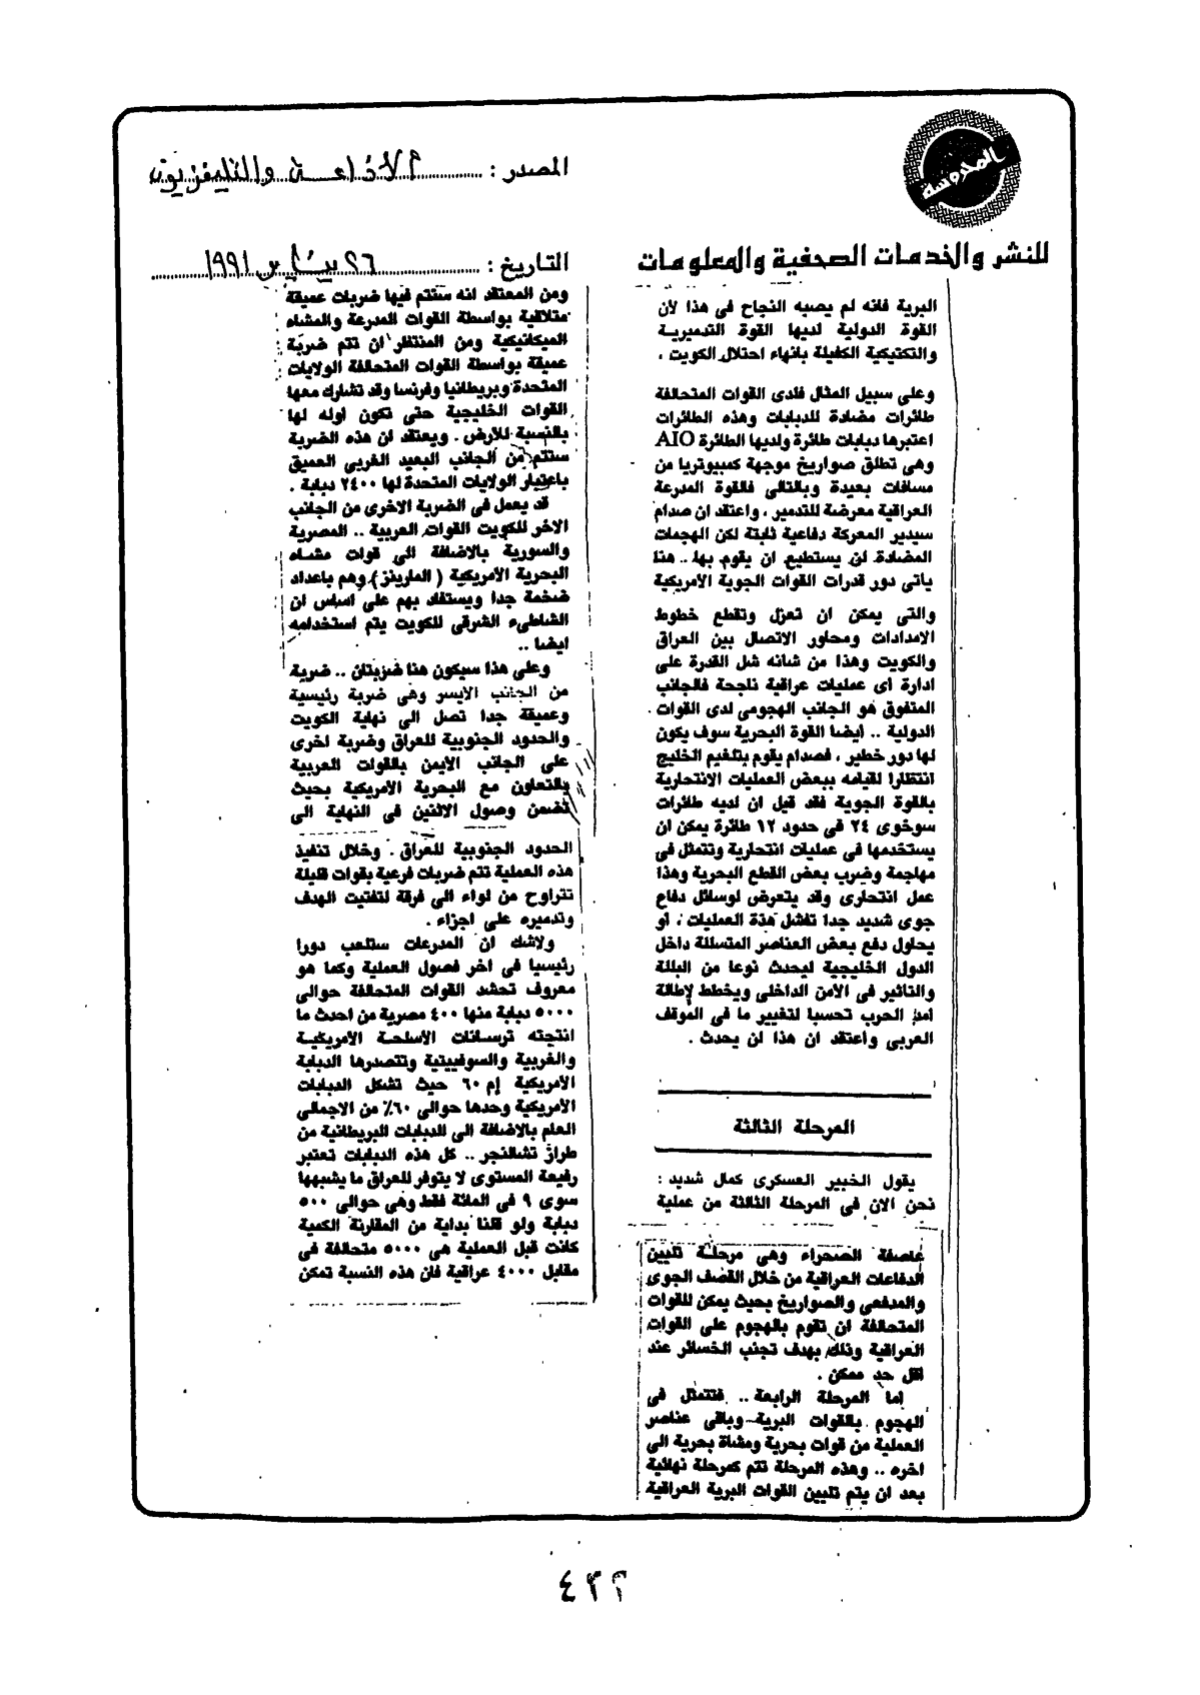 المحروسة
للنشر والخدمات الصحفية والمعلومات
المصدر : الاذاعة والتليفزيون
التاريخ : ٢٦ يناير ١٩٩١
البرية فانه لم يصبه النجاح فى هذا لأن
القوة الدولية لديها القوة التدميرية
والتكتيكية الكفيلة بانهاء احتلال الكويت .
وعلى سبيل المثال فلدى القوات المتحالفة
طائرات مضادة للدبابات وهذه الطائرات
اعتبرها دبابات طائرة ولديها الطائرة AIO
وهى تطلق صواريخ موجهة كمبيوتريا من
مسافات بعيدة وبالتالى فالقوة المدرعة
العراقية معرضة للتدمير ، واعتقد ان صدام
سيدير المعركة دفاعية ثابتة لكن الهجمات
المضادة لن يستطيع ان يقوم بها .. هنا
ياتى دور قدرات القوات الجوية الامريكية
والتى يمكن ان تعزل وتقطع خطوط
الامدادات ومحاور الاتصال بين العراق
والكويت وهذا من شانه شل القدرة على
ادارة أى عمليات عراقية ناجحة فالجانب
المتفوق هو الجانب الهجومى لدى القوات
الدولية .. ايضا القوة البحرية سوف يكون
لها دور خطير ، فصدام يقوم بتلغيم الخليج
انتظارا لقيامه ببعض العمليات الانتحارية
بالقوة الجوية فقد قيل ان لديه طائرات
سوخوى ٢٤ فى حدود ١٢ طائرة يمكن ان
يستخدمها فى عمليات انتحارية وتتمثل فى
مهاجمة وضرب بعض القطع البحرية وهذا
عمل انتحارى وقد يتعرض لوسائل دفاع
جوى شديد جدا تفشل هذة العمليات ، أو
يحاول دفع بعض العناصر المتسللة داخل
الدول الخليجية ليحدث نوعا من البللة
والتاثير فى الأمن الداخلى ويخطط لإطالة
امد الحرب تحسبا لتغيير ما فى الموقف
العربى واعتقد ان هذا لن يحدث .
المرحلة الثالثة
يقول الخبير العسكرى كمال شديد :
نحن الان فى المرحلة الثالثة من عملية
عاصفة الصحراء وهى مرحلة تليين
الدفاعات العراقية من خلال القصف الجوى
والمدفعى والصواريخ بحيث يمكن للقوات
المتحالفة ان تقوم بالهجوم على القوات
العراقية وذلك بهدف تجنب الخسائر عند
اقل حد ممكن .
اما المرحلة الرابعة .. فتتمثل فى
الهجوم بالقوات البرية وباقى عناصر
العملية من قوات بحرية ومشاة بحرية الى
اخره .. وهذه المرحلة تتم كمرحلة نهائية
بعد ان يتم تليين القوات البرية العراقية
ومن المعتقد انه ستتم فيها ضربات عميقة
متلاقية بواسطة القوات المدرعة والمشاه
الميكانيكية ومن المنتظر ان تتم ضربة
عميقة بواسطة القوات المتحالفة الولايات
المتحدة وبريطانيا وفرنسا وقد تشارك معها
القوات الخليجية حتى تكون اوله لها
بالنسبة للأرض . ويعتقد ان هذه الضربة
ستتم من الجانب البعيد الغربى العميق
باعتبار الولايات المتحدة لها ٢٤٠٠ دبابة .
قد يعمل فى الضربة الاخرى من الجانب
الاخر للكويت القوات العربية .. المصرية
والسورية بالاضافة الى قوات مشاه
البحرية الامريكية ( المارينز ) وهم باعداد
ضخمة جدا ويستفاد بهم على اساس ان
الشاطىء الشرقى للكويت يتم استخدامه
ايضا ..
وعلى هذا سيكون هنا ضربتان .. ضربة
من الجانب الايسر وهى ضربة رئيسية
وعميقة جدا تصل الى نهاية الكويت
والحدود الجنوبية للعراق وضربة اخرى
على الجانب الايمن بالقوات العربية
بالتعاون مع البحرية الأمريكية بحيث
تضمن وصول الاثنين فى النهاية الى
الحدود الجنوبية للعراق . وخلال تنفيذ
هذه العملية تتم ضربات فرعية بقوات قليلة
تتراوح من لواء الى فرقة لتفتيت الهدف
وتدميره على اجزاء .
ولاشك ان المدرعات ستلعب دورا
رئيسيا فى اخر فصول العملية وكما هو
معروف تحشد القوات المتحالفة حوالى
٥٠٠٠ دبابة منها ٤٠٠ مصرية من احدث ما
انتجته ترسانات الأسلحة الأمريكية
والغربية والسوفييتية وتتصدرها الدبابة
الأمريكية إم ٦٠ حيث تشكل الدبابات
الامريكية وحدها حوالى ٦٠٪ من الاجمالى
العام بالاضافة الى الدبابات البريطانية من
طراز تشالنجر .. كل هذه الدبابات تعتبر
رفيعة المستوى لا يتوفر للعراق ما يشبهها
سوى ٩ فى المائة فقط وهى حوالى ٥٠٠
دبابة ولو قلنا بداية من المقارنة الكمية
كانت قبل العملية هى ٥٠٠٠ متحالفة فى
مقابل ٤٠٠٠ عراقية فان هذه النسبة تمكن
٤٢٢